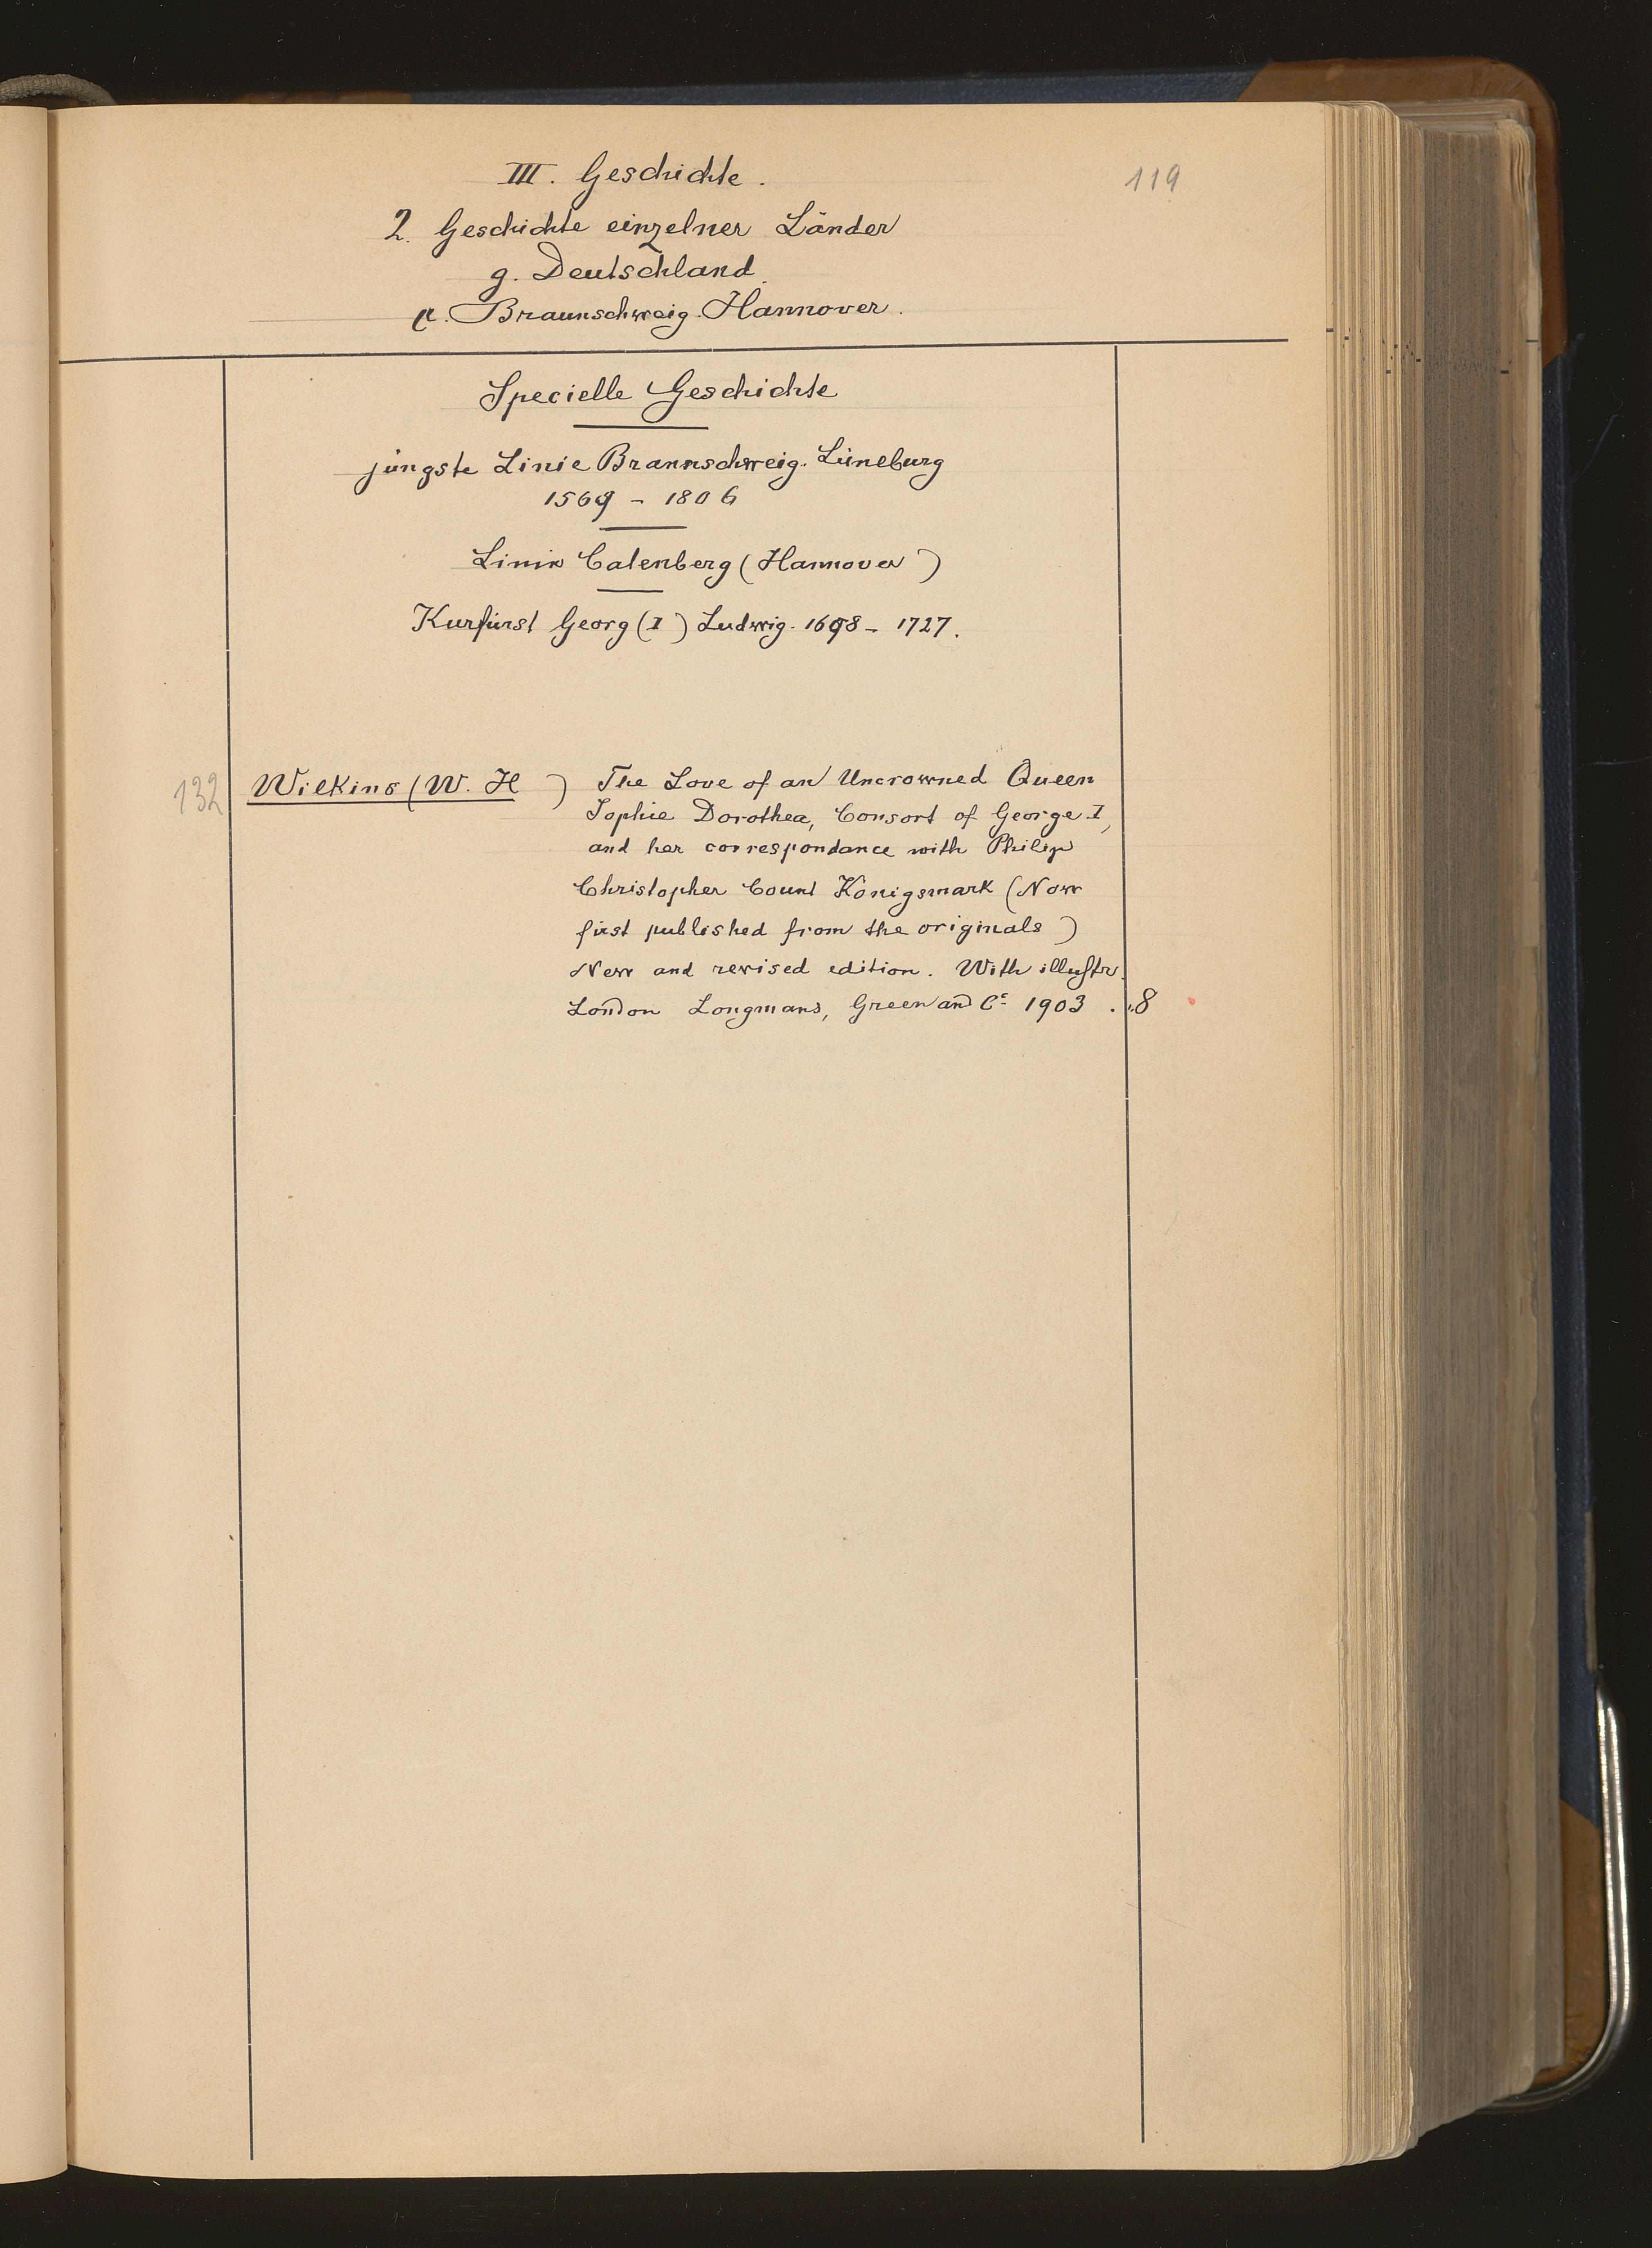 III. Geschichte.
119
2. Geschichte einzelner Länder
g. Deutschland.
α. Braunschweig-Hannover.
Specielle Geschichte
jüngste Linie Braunschweig-Lüneburg
1569 - 1806
Linie Calenberg (Hannover)
Kurfürst Georg (I) Ludwig. 1698 - 1727.
132 Wilkins (W. H ) The Love of an Uncrowned Queen
Sophie Dorothea, Consort of George I,
and her correspondance with Philip
Christopher Count Königsmark (Now
first published from the originals)
New and revised edition. With illustr.
London Longmans, Green and Cº 1903 . 8